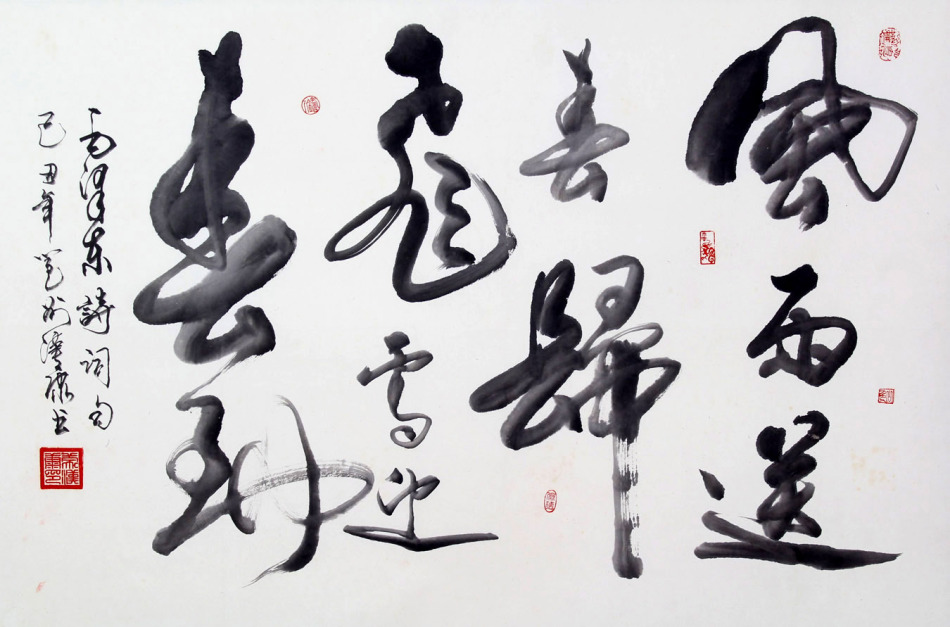 風雨送
春歸
飛雪迎
春到
毛澤東詩詞句
己丑年
書